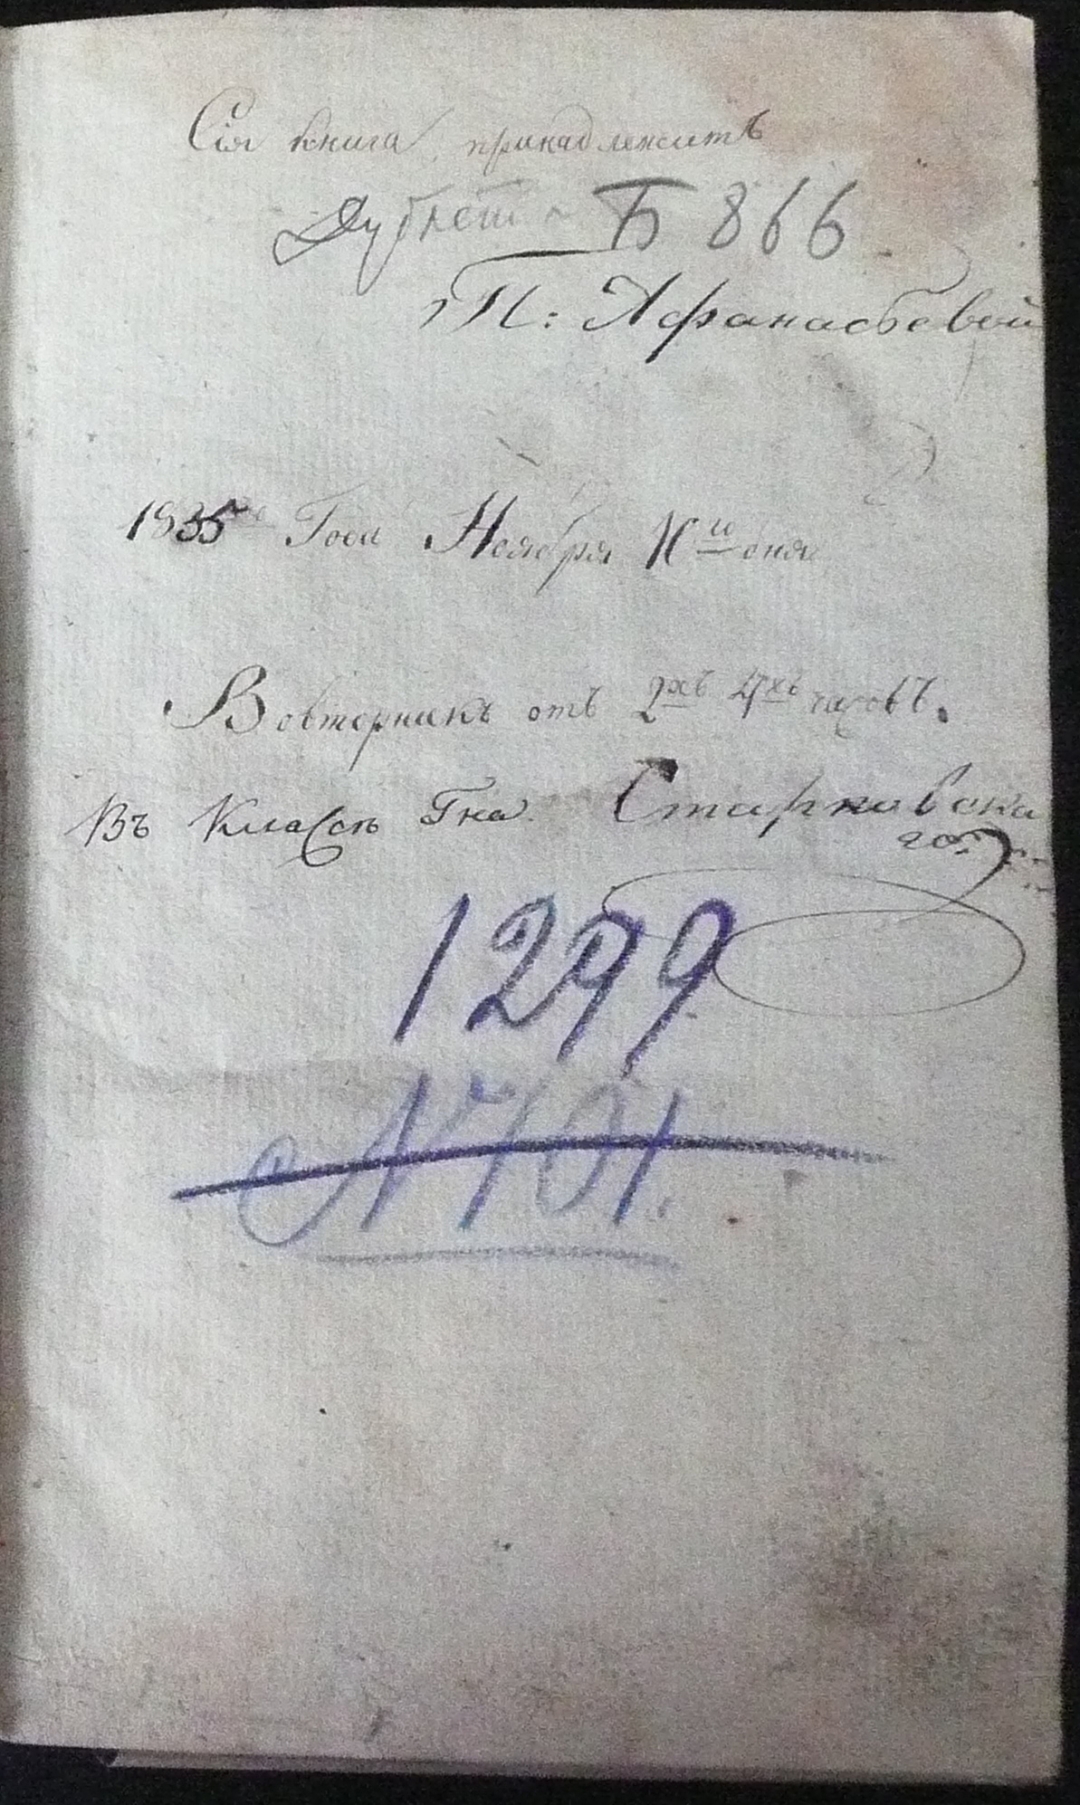 Сія книга принадлежитъ
Дублетъ Б 866
П: Афанасьевой
1835 Года Ноября дня
Вовторникъ отъ 2хъ 4хъ часовъ.
Въ Класѣ Гна.
1299
№ 101.